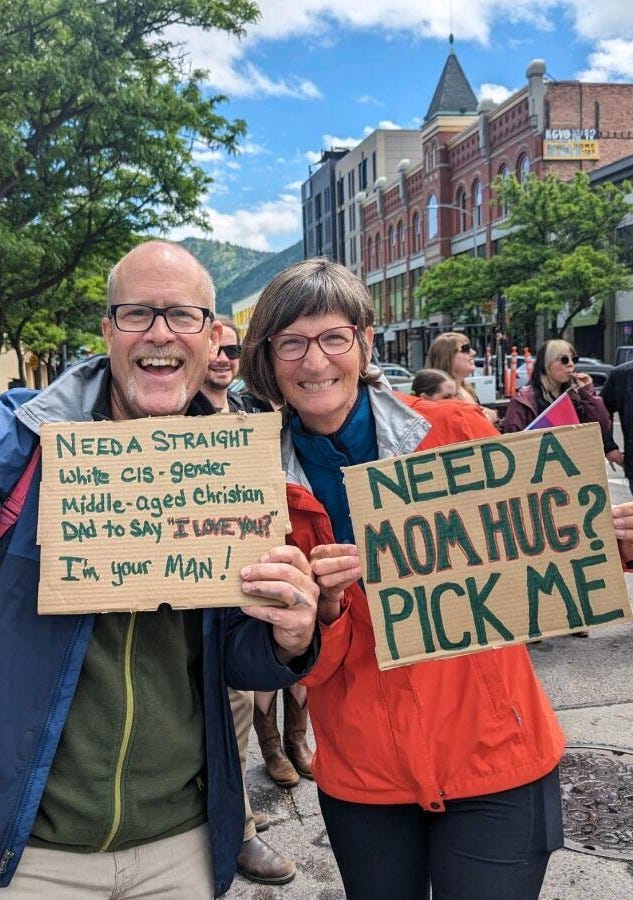 NEED A STRAIGHT
White CIS-gender
Middle-aged Christian
DAD to SAY "I LOVE YOU?"
I'm your MAN!
NEED A
MOM HUG?
PICK ME
KGVO